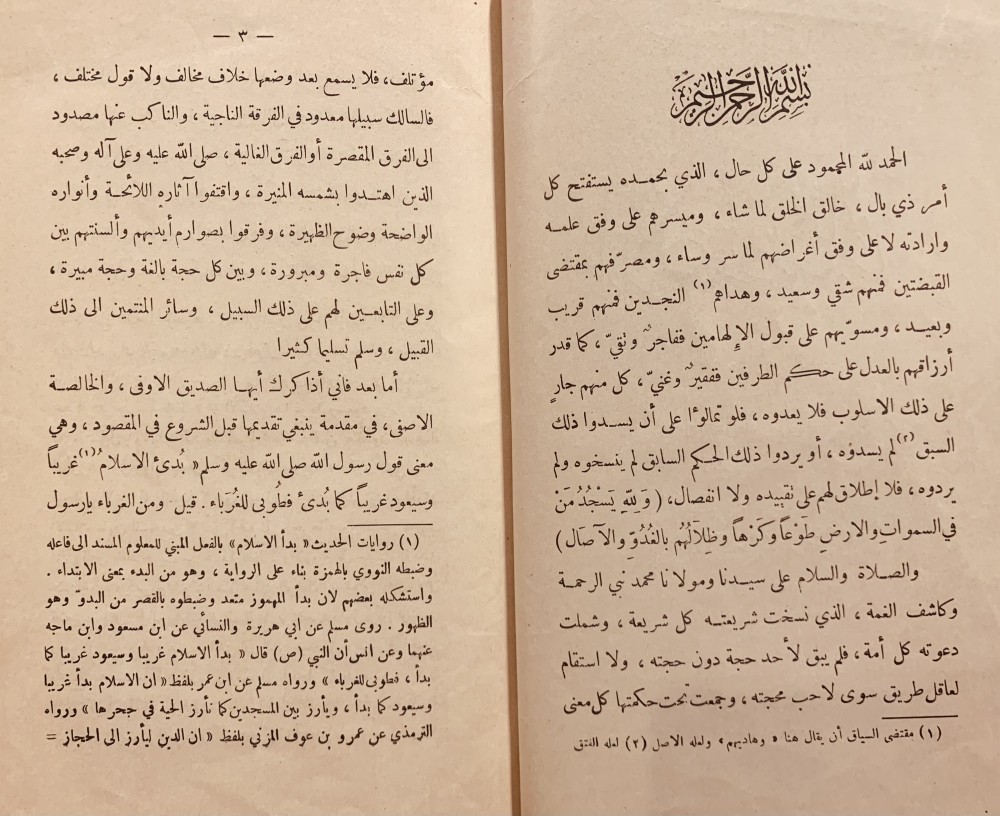 بسم الله الرحمن الرحيم
الحمد لله المحمود على كل حال ، الذي بحمـده يستفتح كل
أمر ذي بال ، خالق الخلق لما شاء ، وميسرهم على وفق علمـه
وارادته لا على وفق أغراضهم لما سر وساء ، ومصرّفهم بمقتضى
القبضتين فمنهم شقي وسعيد ، وهداهم (١) النجـدين فمنهم قريب
وبعيـد ، ومسوّيهم على قبول الإلهامين ففاجرٌ وتقيّ ، كما قدر
أرزاقهم بالعدل على حـكم الطرفين ففقيرٌ وغنيّ ، كل منهم جارٍ
على ذلك الاسلوب فلا يعدوه ، فلو تمالؤا على أن يسـدوا ذلك
السبق (٢) لم يسدوه ، أو يردوا ذلك الحـكم السابق لم ينسخوه ولم
يردوه ، فلا إطلاق لهم على تقييده ولا انفصال ، ( وَلِلّهِ يَسْجُدُ مَنْ
في السمواتِ والارضِ طَوْعاً وَكَرْهاً وظِلاَلُهُم بالغُدُوِّ والآصَال )
والصـلاة والسلام على سيـدنا ومولانا محمد نبي الرحمـة
وكاشف الغمة ، الذي نسخت شريعتـه كل شريعة ، وشملت
دعوته كل أمة ، فلم يبق لأحد حجة دون حجته ، ولا استقام
لعاقل طريق سوى لاحب محجته ، وجمعت تحت حكمتها كل معنى
(١) مقتضى السياق أن يقال هنا « وهاديهم » ولعله الاصل (٢) لعله الفتق
— ٣ —
مؤتلف، فلا يسمع بعد وضعها خلاف مخالف ولا قول مختلف ،
فالسالك سبيلها معدود في الفرقة الناجية ، والناكب عنها مصدود
الى الفرق المقصرة أو الفرق الغالية ، صلى الله عليه وعلى آله وصحبه
الذين اهتـدوا بشمسه المنيرة ، واقتفوا آثاره اللائحـة وأنواره
الواضحة وضوح الظهيرة ، وفرقوا بصوارم أيديهم وألسنتهم بين
كل نفس فاجرة ومبرورة ، وبين كل حجة بالغة وحجة مبيرة ،
وعلى التابعـين لهم على ذلك السبيل ، وسائر المنتمين الى ذلك
القبيل ، وسلم تسليما كثيرا
أما بعد فاني أذاكرك أيهـا الصديق الاوفى ، والخالصـة
الاصفى، في مقدمة ينبغي تقديمها قبل الشروع في المقصود ، وهي
معنى قول رسول الله صلى الله عليه وسلم « بُدئ الاسلامُ (١) غريباً
وسيعود غريباً كما بُدئ فطُوبى للغُرَباء . قيل ومن الغرباء يا رسول
(١) روايات الحديث « بدأ الاسلام » بالفعل المبني للمعلوم المسند الى فاعله
وضبطه النووي بالهمزة بناء على الرواية ، وهو من البدء بمعنى الابتداء .
واستشكله بعضهم لان بدأ المهموز متعد وضبطوه بالقصر من البدوّ وهو
الظهور . روى مسلم عن ابي هريرة والنسائي عن ابن مسعود وابن ماجه
عنهما وعن انس أن النبي (ص) قال « بدأ الاسلام غريبا وسيعود غريبا كما
بدأ ، فطوبى للغرباء » ورواه مسلم عن ابن عمر بلفظ « ان الاسلام بدأ غريبا
وسيعود كما بدأ ، ويأرز بين المسجدين كما تأرز الحية في جحرها » ورواه
الترمذي عن عمرو بن عوف المزني بلفظ « ان الدين ليأرز الى الحجاز =